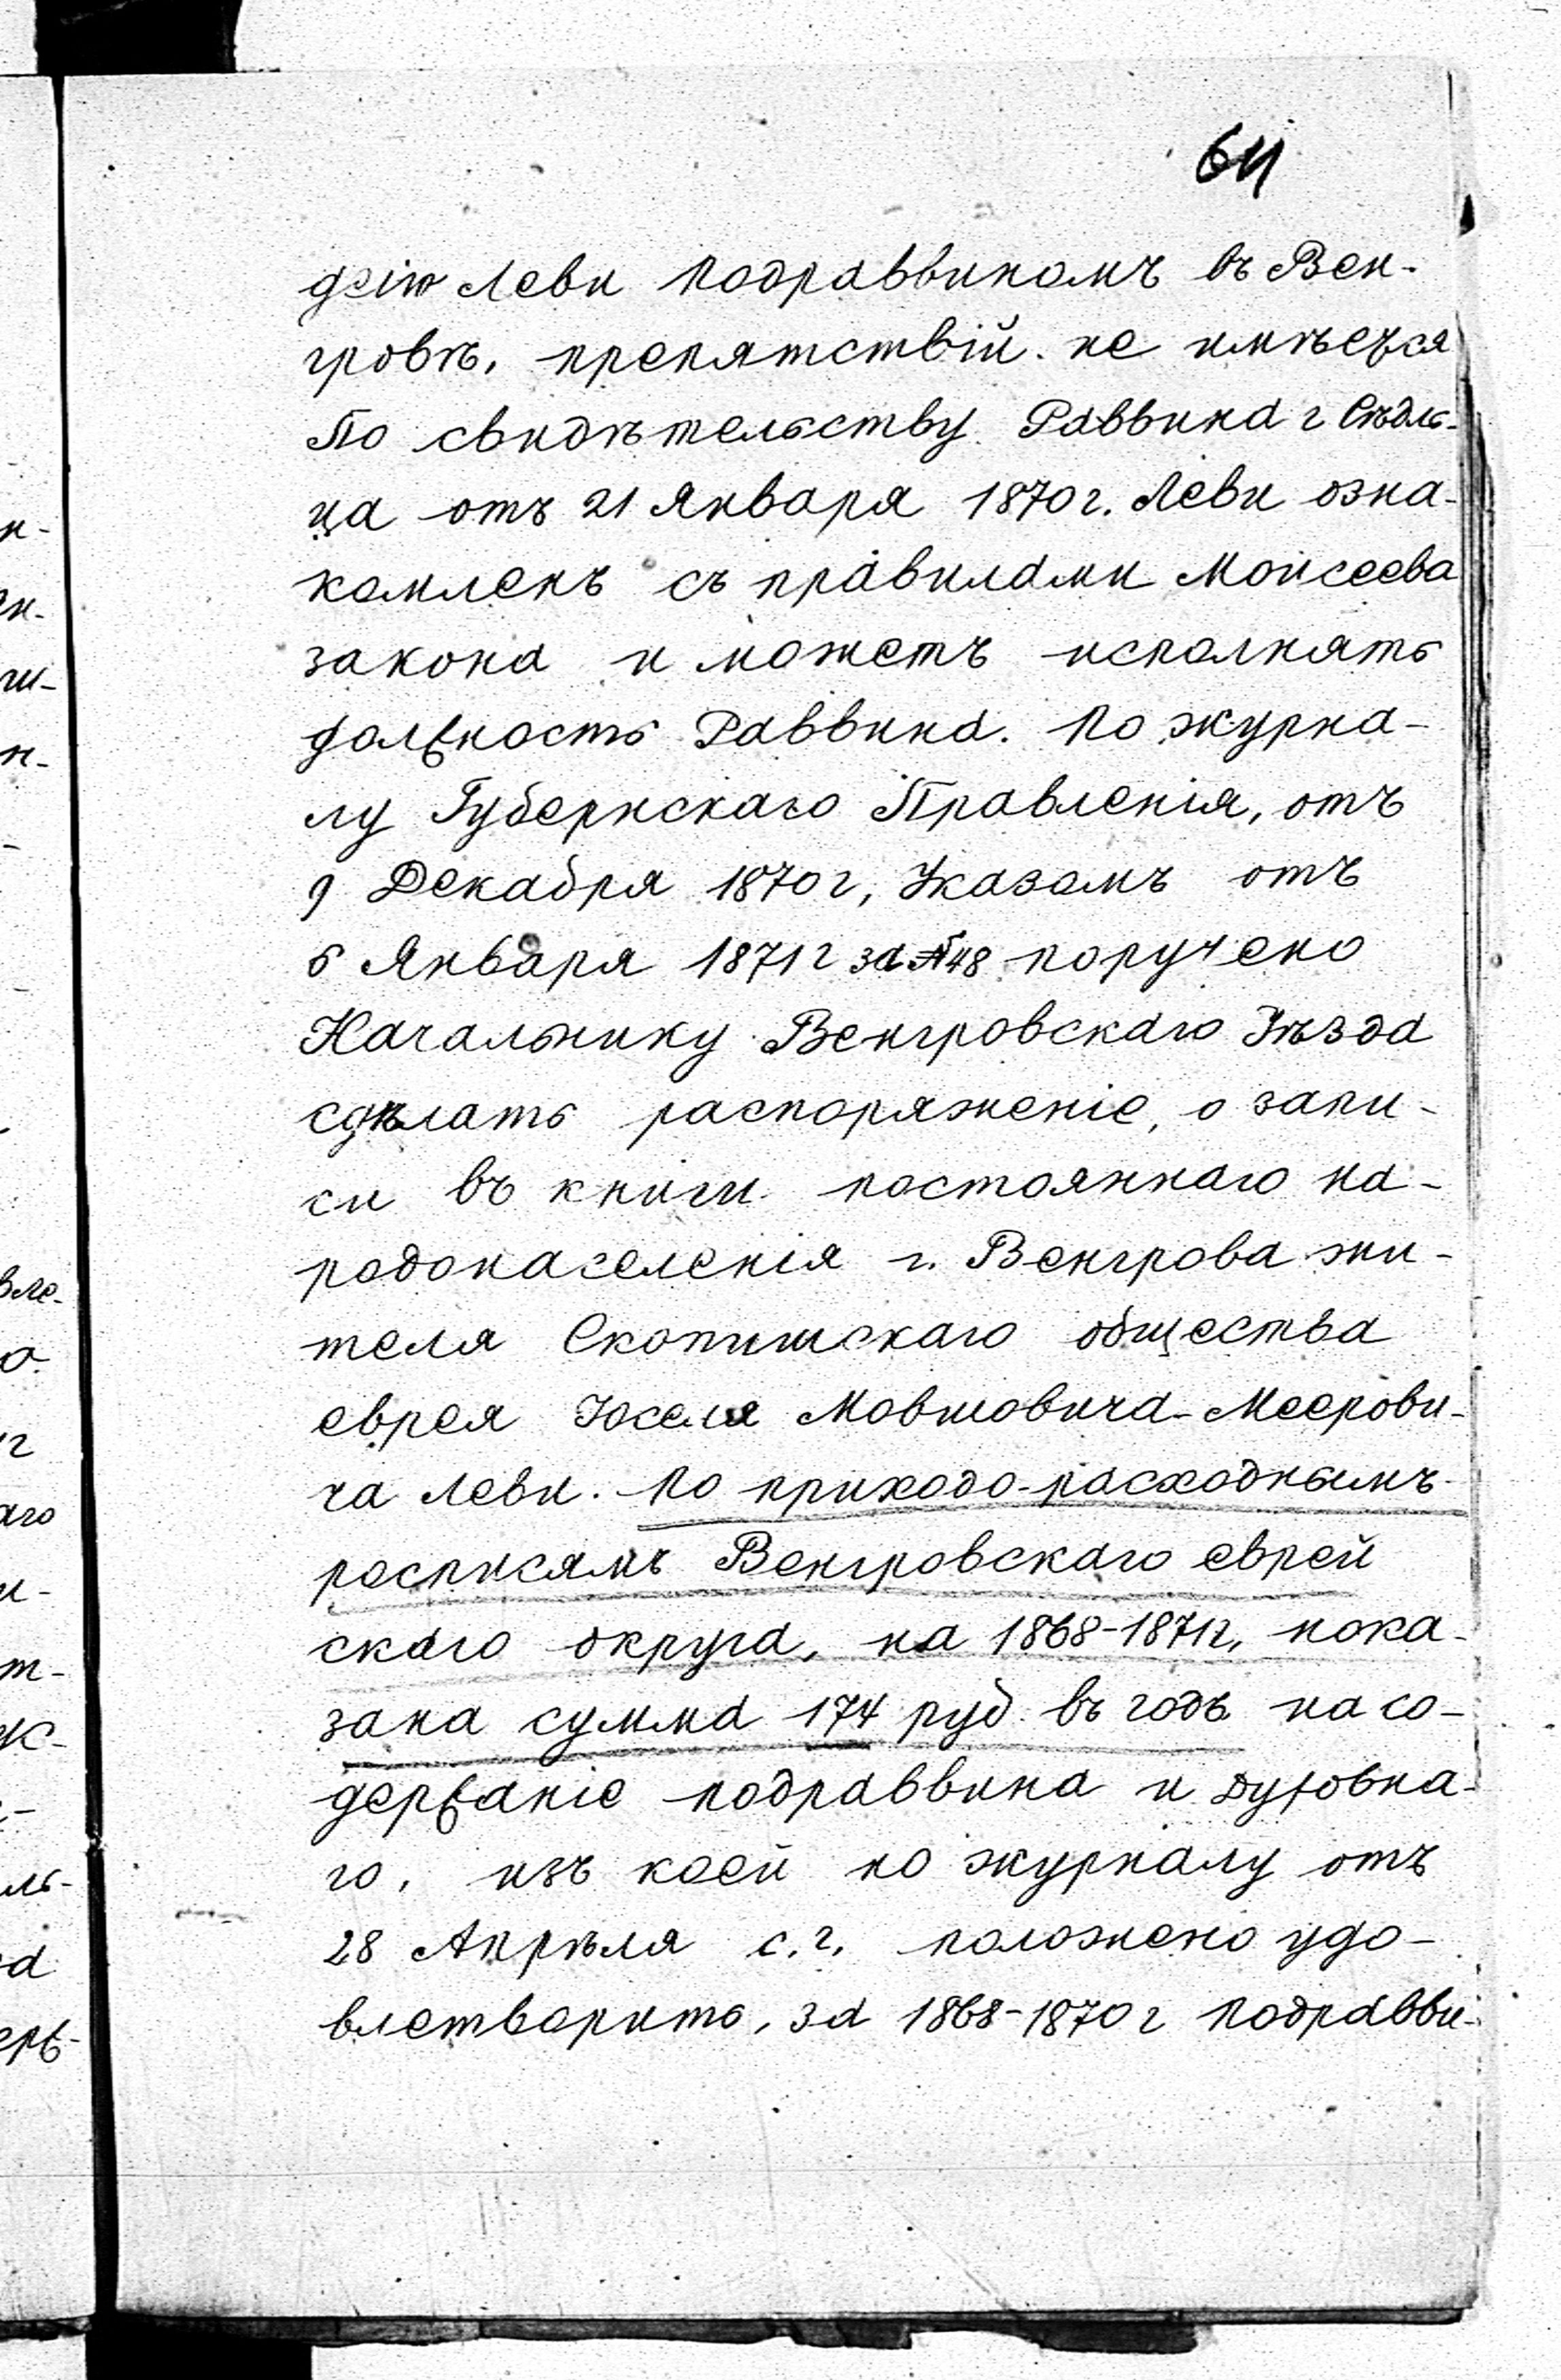 64
дѣію Леви подраввиномъ въ Вен-
гровѣ, препятствій не имѣется
По свидѣтельству Раввина г Сѣдль-
ца отъ 21 Января 1870 г. Леви озна-
комленъ съ правилами Моисеева
закона и можетъ исполнять
должность Раввина. По журна-
лу Губернскаго Правленія, отъ
9 Декабря 1870 г, Указомъ отъ
5 Января 1871 г за № 48 поручено
Начальнику Венгровскаго Уѣзда
сдѣлать распоряженіе, о запи-
си въ книги постояннаго на-
родонаселенія г. Венгрова жи-
теля Скопишскаго общества
еврея Іоселя Мовшовича-Меерови-
ча Леви. По приходо-расходнымъ
росписямъ Венгровскаго еврей
скаго округа, на 1868-1871 г, пока-
зана сумма 174 руб въ годъ на со-
держаніе подраввина и духовна-
го, изъ коей по журналу отъ
28 Апрѣля с. г. положено удо-
влетворить, за 1868-1870 г подравви-
н-
ен-
ги-
н-
вле-
о
г
аго
и-
т-
ж-
ль-
а
ерж-